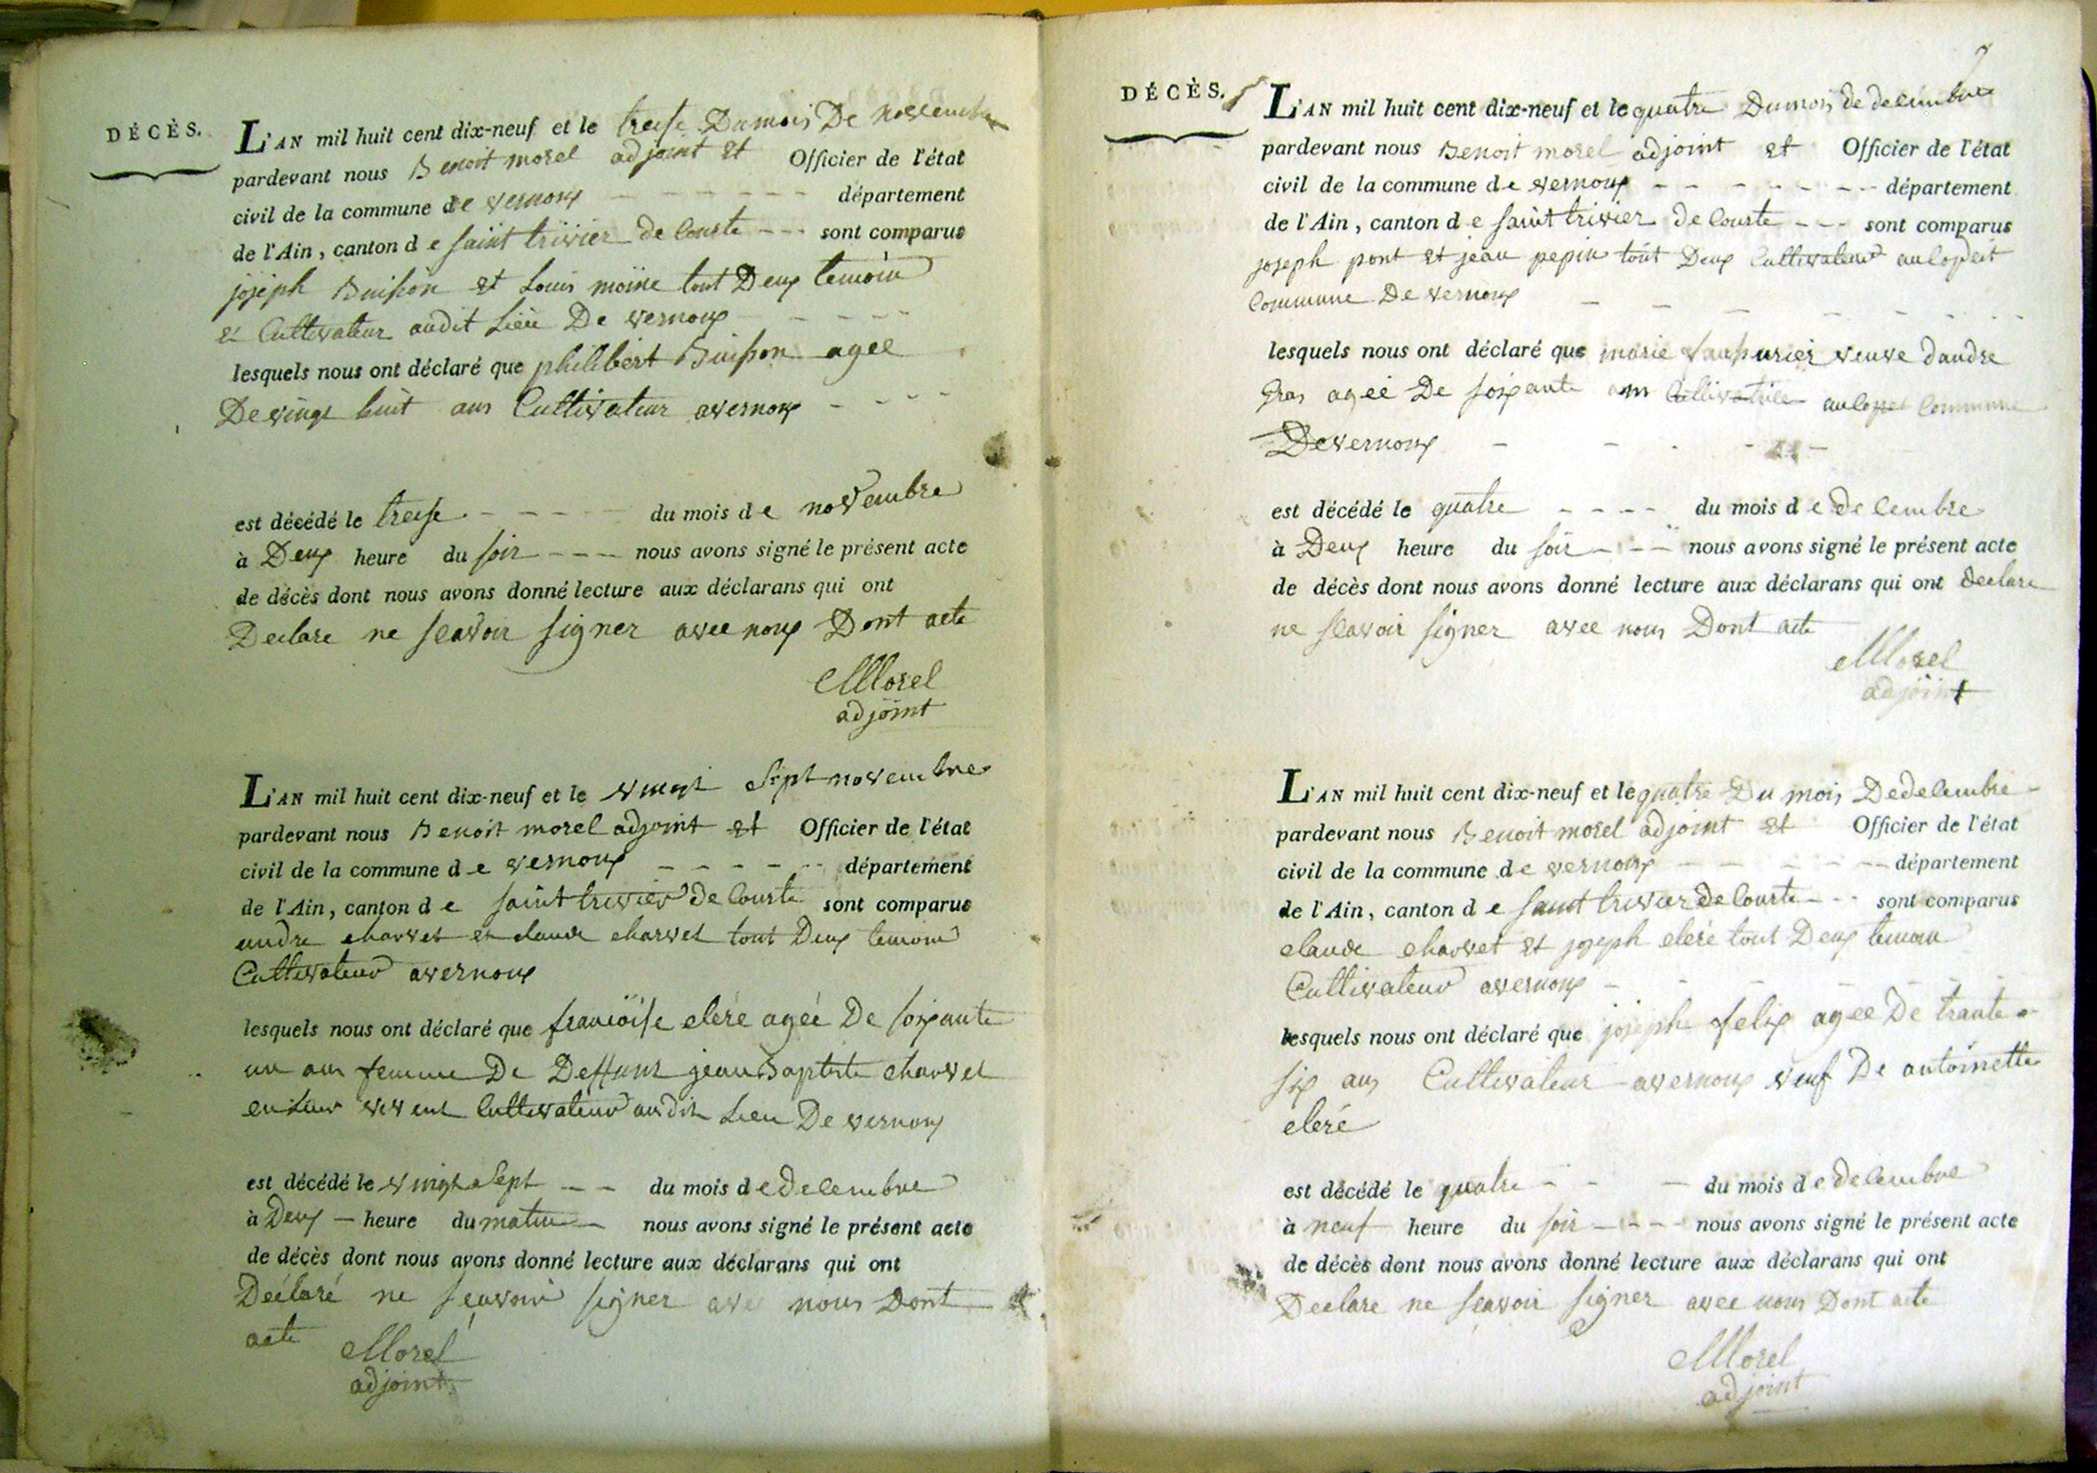 DÉCÈS.
L'AN mil huit cent dix-neuf et le treise Du mois De novembre
pardevant nous Benoit morel adjoint et Officier de l'état
civil de la commune de vernoux département
de l'Ain, canton de saint trivier de Courte sont comparus
joseph Buisson et Louis moine tout Deux temoin
et Cultivateur audit Lieu De vernoux
lesquels nous ont déclaré que philibert Buisson agee
De vingt huit ans Cultivateur a vernoux
est décédé le treise du mois de novembre
à Deux heure du soir nous avons signé le présent acte
de décès dont nous avons donné lecture aux déclarans qui ont
Declare ne scavoir signer avec nous Dont acte
Morel
adjoint
L'AN mil huit cent dix-neuf et le vingt sept novembre
pardevant nous Benoit morel adjoint et Officier de l'état
civil de la commune de vernoux département
de l'Ain, canton de saint trivier de Courte sont comparus
andre charvet et claude charvet tout Deux temoin
Cultivateur a vernoux
lesquels nous ont déclaré que francoise cleré agée De soixante
un ans femme De Deffunt jean Baptiste charvet
en Leur vivent Cultivateur au dit Lieu De vernoux
est décédé le vingt sept du mois de decembre
à Deux heure du matin nous avons signé le présent acte
de décès dont nous avons donné lecture aux déclarans qui ont
Déclaré ne scavoir signer avec nous Dont
acte
Morel
adjoint
DÉCÈS.
L'AN mil huit cent dix-neuf et le quatre Du mois de decembre
pardevant nous Benoit morel adjoint et Officier de l'état
civil de la commune de vernoux département
de l'Ain, canton de saint trivier de Courte sont comparus
joseph pont et jean pepin tout Deux Cultivateur au
Commune De vernoux
lesquels nous ont déclaré que marie veuve dandre
Gras agée De soixante ans Cultivatrice au Commune
De vernoux
est décédé le quatre du mois de decembre
à Deux heure du soir nous avons signé le présent acte
de décès dont nous avons donné lecture aux déclarans qui ont declare
ne scavoir signer avec nous Dont acte
Morel
adjoint
L'AN mil huit cent dix-neuf et le quatre Du mois De decembre
pardevant nous Benoit morel adjoint et Officier de l'état
civil de la commune de vernoux département
de l'Ain, canton de saint trivier de Courte sont comparus
claude charvet et joseph cleré tout Deux temoin
Cultivateur a vernoux
lesquels nous ont déclaré que joseph felix agee De trante
six ans Cultivateur a vernoux veuf De antoinette
cleré
est décédé le quatre du mois de decembre
à neuf heure du soir nous avons signé le présent acte
de décès dont nous avons donné lecture aux déclarans qui ont
Declare ne scavoir signer avec nous Dont acte
Morel
adjoint